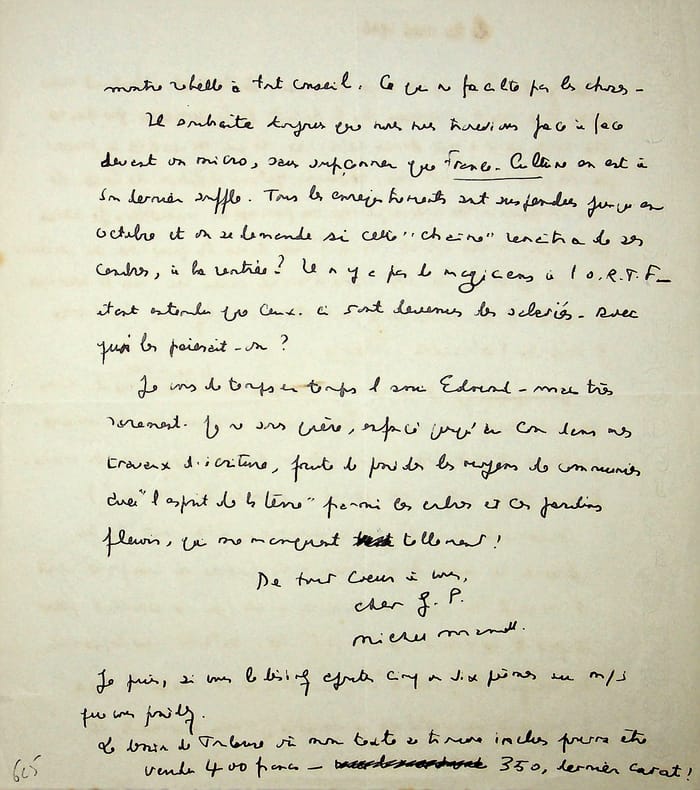 montre rebelle à tout conseil. Ce qui ne facilite pas les choses -
Il souhaite toujours que nous nous trouvions face à face
devant un micro, sans soupçonner que France-Culture en est à
son dernier souffle. Tous les enregistrements sont suspendus jusqu'en
octobre et on se demande si cette "chaîne" renaîtra de ses
cendres, à la rentrée ? Il n'y a pas de magiciens à l'O.R.T.F -
étant entendu que ceux-ci sont devenus des salariés - avec
quoi les paierait-on ?
Je vois de temps en temps l'ami Edmond - mais très
rarement. Je ne sors guère, enfoncé jusqu'au cou dans mes
travaux d'écriture, faute de posséder les moyens de communier
avec "l'esprit de la terre" parmi les arbres et ces jardins
fleuris, qui me manquent tellement !
De tout cœur à vous,
cher G. P.
Michel
Je puis, si vous le désirez ajouter cinq ou six poèmes au m/s
que vous possédez.
Le de où mon texte se trouve inclus pourra être
vendu 400 francs - 350, dernier carat !
605